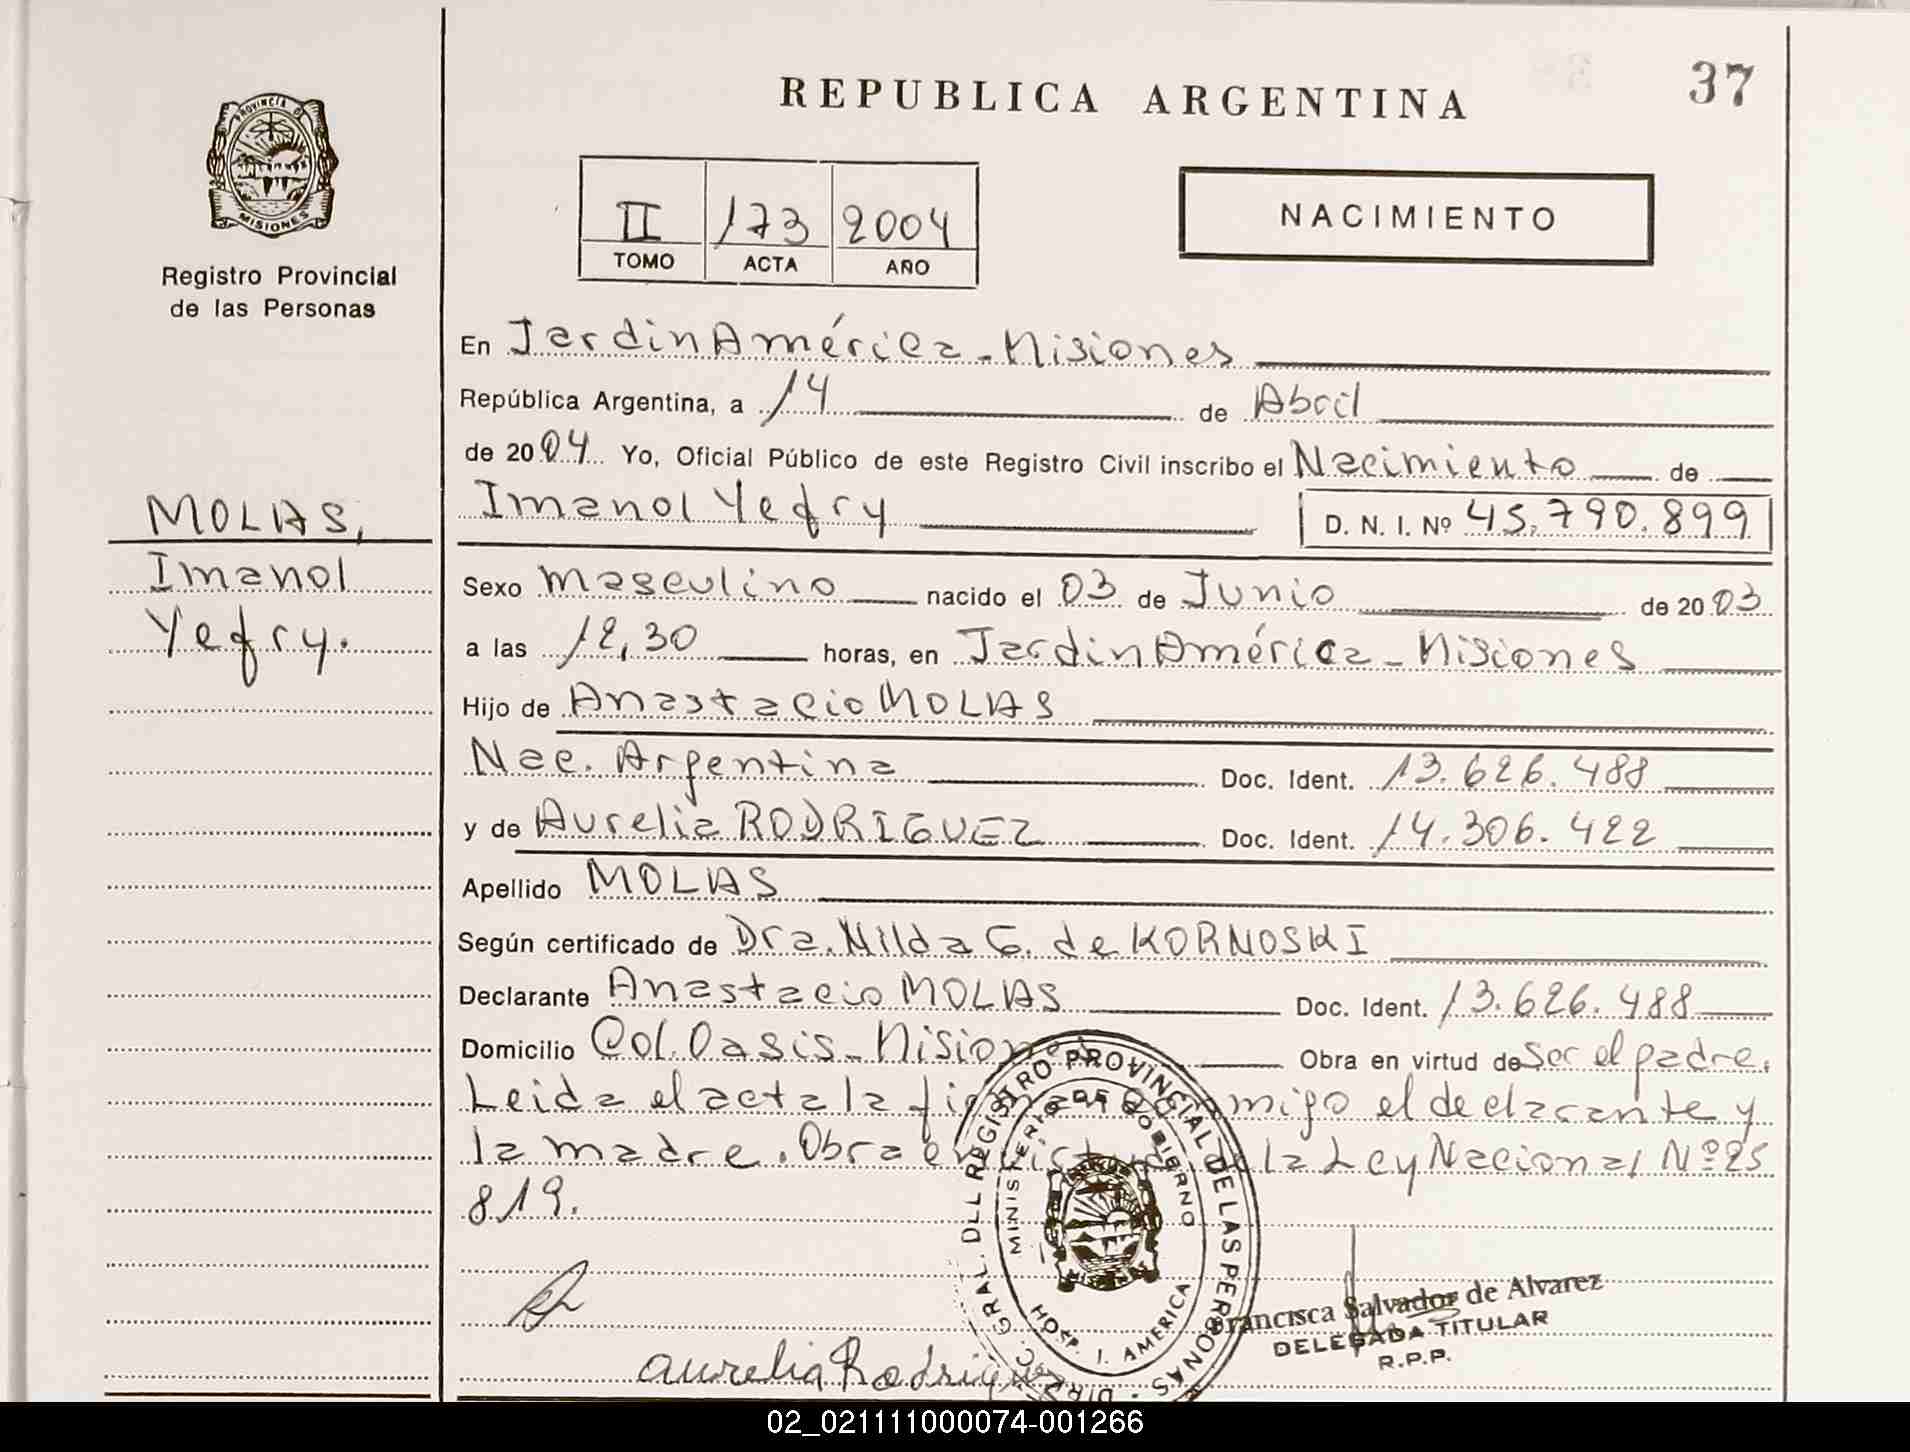 37
REPUBLICA ARGENTINA
PROVINCIA DE
MISIONES
Registro Provincial
de las Personas
II 173 2004
TOMO ACTA AÑO
NACIMIENTO
En Jardin América - Misiones
República Argentina, a 14 de Abril
de 2004 Yo, Oficial Público de este Registro Civil inscribo el Nacimiento de
Imanol Yefry D. N. I. Nº 45.790.899
MOLAS,
Imanol
Yefry.
Sexo masculino nacido el 03 de Junio de 2003
a las 12,30 horas, en Jardin América - Misiones
Hijo de Anastacio MOLAS
Nac. Argentina Doc. Ident. 13.626.488
y de Aurelia RODRIGUEZ Doc. Ident. 14.306.422
Apellido MOLAS
Según certificado de Dra. Nilda G. de KORNOSKI
Declarante Anastacio MOLAS Doc. Ident. 13.626.488
Domicilio Col. Oasis - Misiones Obra en virtud de Ser el padre.
Leida el acta la firman conmigo el declarante y
la madre. Obra en virtud de la Ley Nacional Nº 25
819.
DIREC. GRAL. DEL REGISTRO PROVINCIAL DE LAS PERSONAS
MINISTERIO DE GOBIERNO
HOSP. J. AMERICA
Francisca Salvador de Alvarez
DELEGADA TITULAR
R.P.P.
Aurelia Rodriguez
02_021111000074-001266